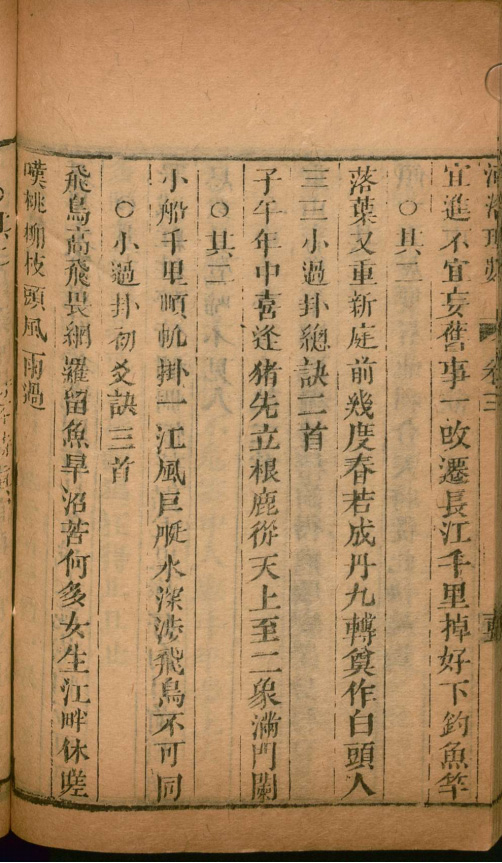 河洛理數 卷三
宜進不宜妄舊事一改遷長江千里掉好下釣魚竿
○其二
落葉又重新庭前幾度春若成丹九轉奠作白頭人
三三小過卦總訣二首
子午年中喜逢猪先立根鹿從天上至二象滿門闌
○其二
小船千里順帆掛一江風巨艇水深涉飛鳥不可同
○小過卦初爻訣三首
飛鳥高飛畏網羅留魚旱沼苦何多女生江畔休嗟
嘆桃柳枝頭風雨過